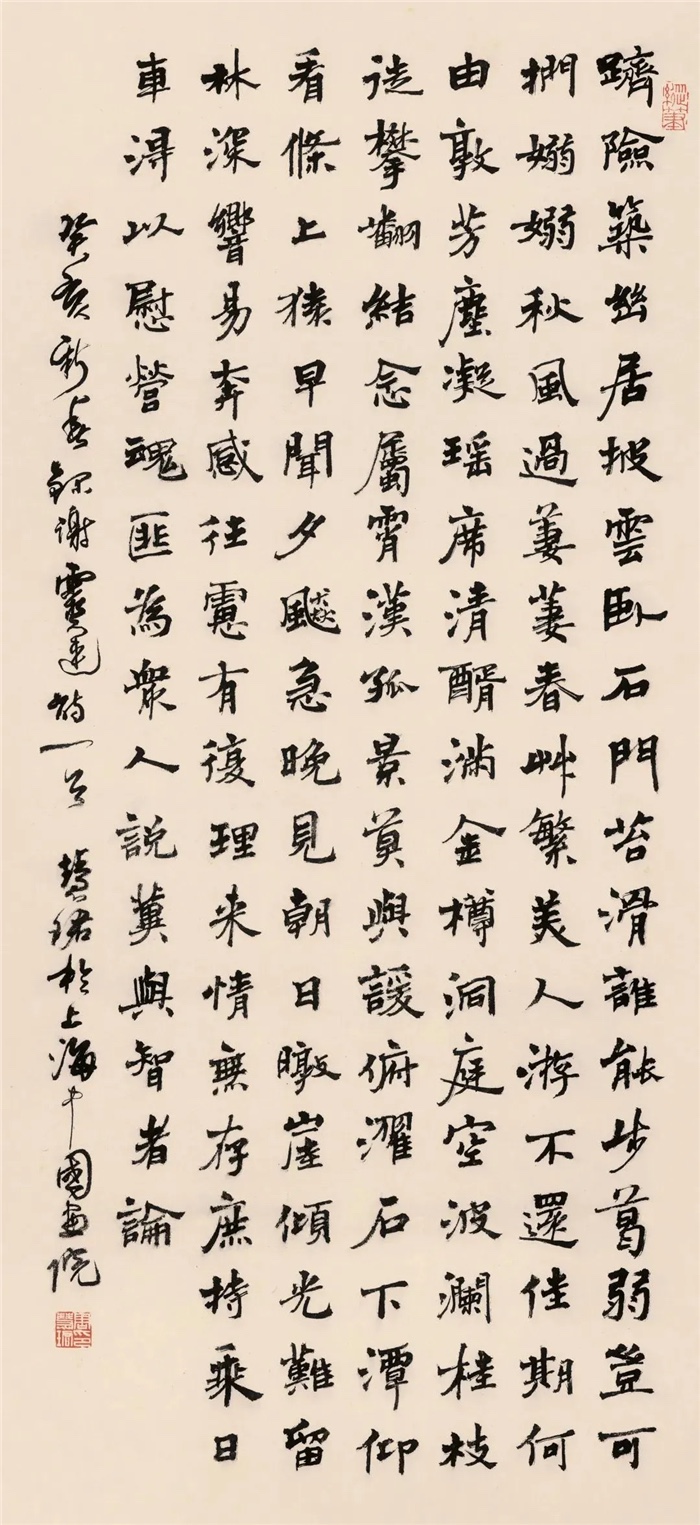 躋險築幽居披雲臥石門苔滑誰能步葛弱豈可
捫嫋嫋秋風過萋萋春艸繁美人游不還佳期何
由敦芳塵凝瑶席清醑滿金樽洞庭空波瀾桂枝
徒攀翻結念屬霄漢孤景莫與諼俯濯石下潭仰
看條上猿早聞夕飈急晚見朝日暾崖傾光難留
林深響易奔感往慮有復理来情無存庶持乘日
車得以慰營魂匪為眾人説冀與智者論
癸亥新春錄謝靈運詩一首 慧珺於上海中國畫院